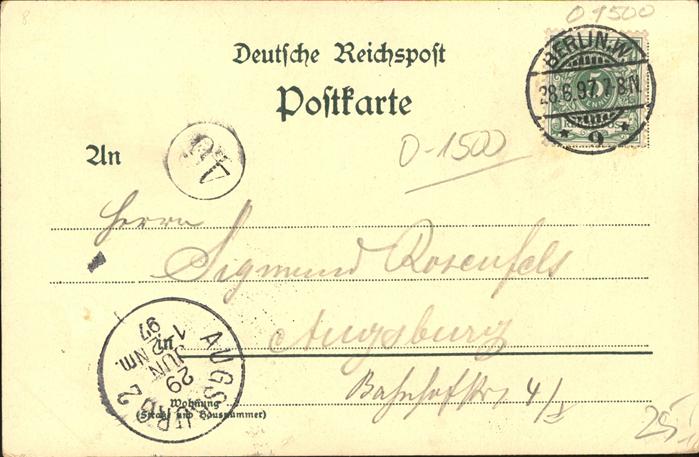 8
O 1500
Deutsche Reichspost
Postkarte
BERLIN.W.
28.6.97.7-8N.
* 9 *
5
O-1500
An
Herrn
Sigmund Rosenfels
in Augsburg
Bahnhofstr. 4/I
Wohnung
(Straße und Hausnummer)
AUGSBURG 2
29
JUN
1-2 Nm.
97
25,-